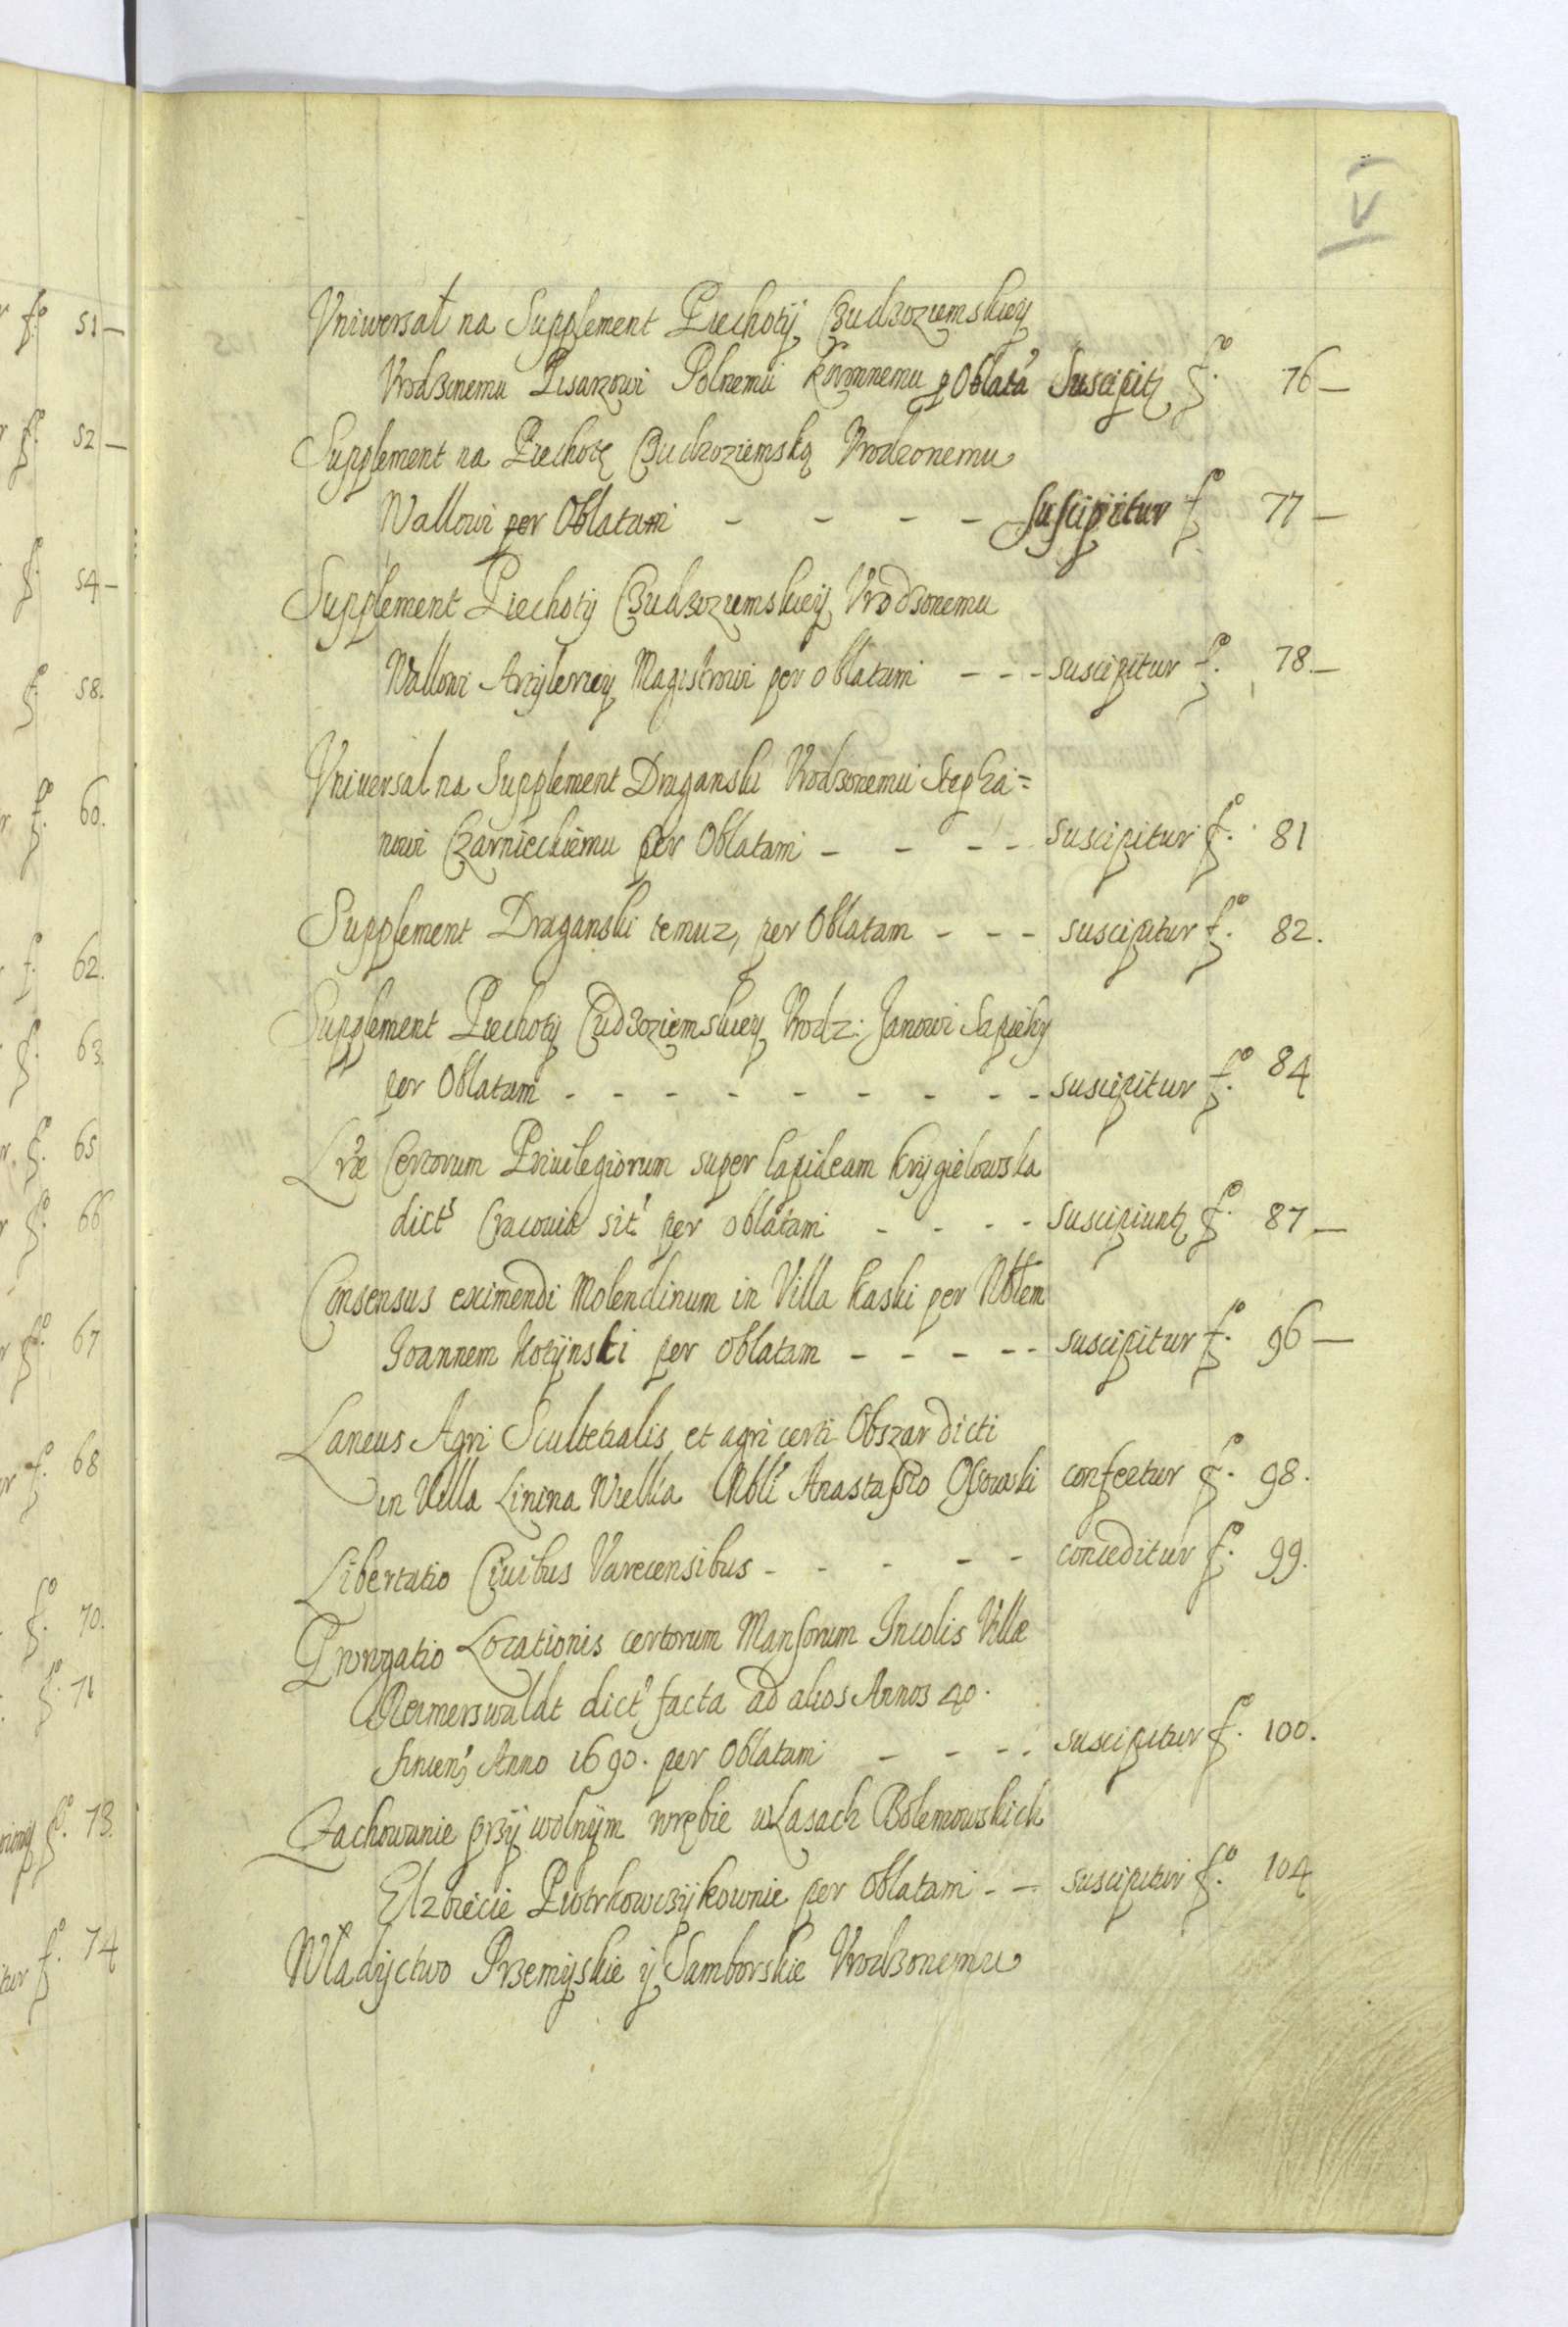 V
Vniwersał na Supplement Piechoty Cudzoziemskiey
Vrodzonemu Pisarzowi Polnemu koronnemu p Oblatã Suscipitr fo. 76 —
Supplement na Piechotę Cudzoziemską Vrodzonemu
Wallowi per Oblatam - - - - suscipitur fo 77 —
Supplement Piechoty Cudzoziemskiey Vrodzonemu
Wallowi Artyleriey Magistrowi per oblatam - - - suscipitur fo. 78. —
Vniuersal na Supplement Draganski Vrodzonemu Stepha=
nowi Czarnieckiemu per Oblatam - - - - suscipitur fo. 81
Supplement Draganski temuz, per Oblatam - - - suscipitur fo. 82.
Supplement Piechoty Cudzoziemskiey Vrodz: Janowi Sapieky
per Oblatam - - - - - - - - - suscipitur fo. 84
Lræ Certorum Priuilegiorum super lapideam krygielowska
dict' Cracouiæ sit' per oblatam - - - - suscipiuntr fo. 87 —
Consensus eximendi Molendinum in Villa kaski per Nblem
Joannem kotynski per oblatam - - - - - suscipitur fo. 96 —
Laneus Agri Scultetialis et agri certi Obszar dicti
in Villa Linina Wielka Nbli Anastasio Ossowski confertur fo. 98.
Libertatio Ciuibus Varecensibus - - - - - conceditur fo. 99.
Prorogatio Locationis certorum Mansorum Incolis Villæ
Reimerswaldt dict' facta ad alios Annos 40.
finien' Anno 1690. per Oblatam - - - - suscipitur fo. 100.
Zachowanie przy wolnym wrębie w Lasach Bolemowskich
Elzbiecie Piotrkowczykownie per Oblatam - - suscipitur fo. 104
Władyctwo Przemyskie y Samborskie Vrodzonemu
fo. 51 —
fo. 52 —
f. 54 —
fo. 58.
fo. 60.
f. 62.
fo. 63.
fo. 65
fo. 66
fo. 67
fo. 68
fo. 70.
fo. 71
fo. 73.
fo. 74